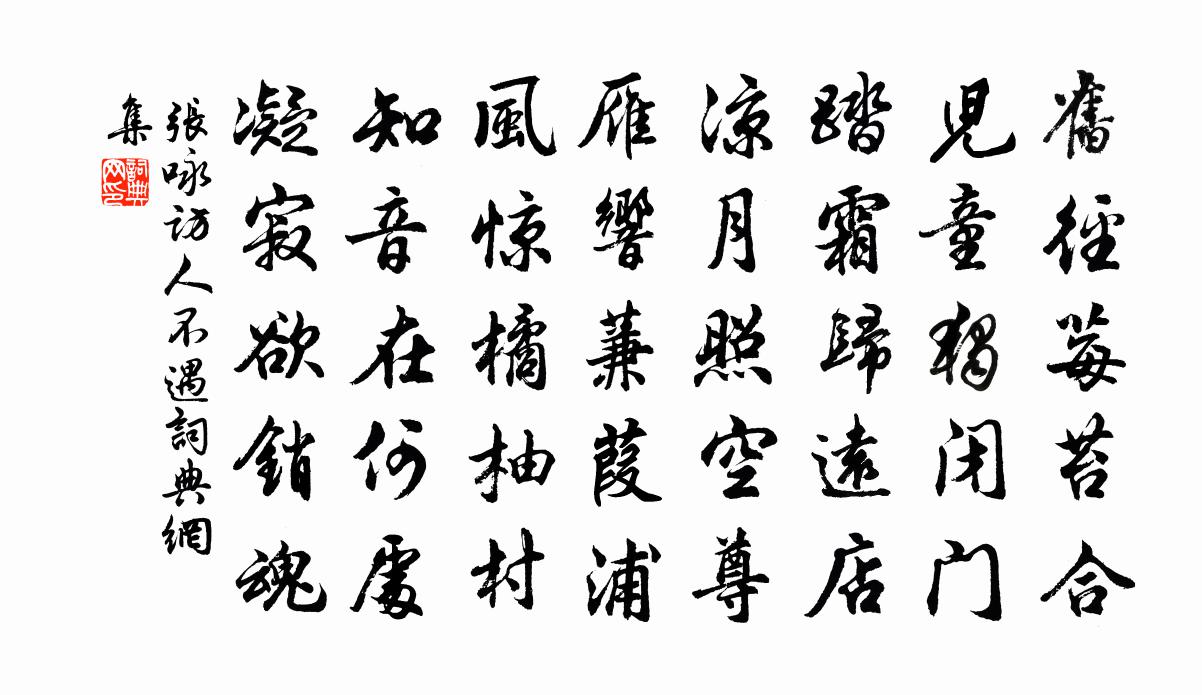 舊徑莓苔合
兒童獨闭门
踏霜歸遠店
涼月照空尊
雁響蒹葭浦
風惊橘柚村
知音在何處
凝寂欲銷魂
張咏訪人不遇詞典網
集
詞典网印